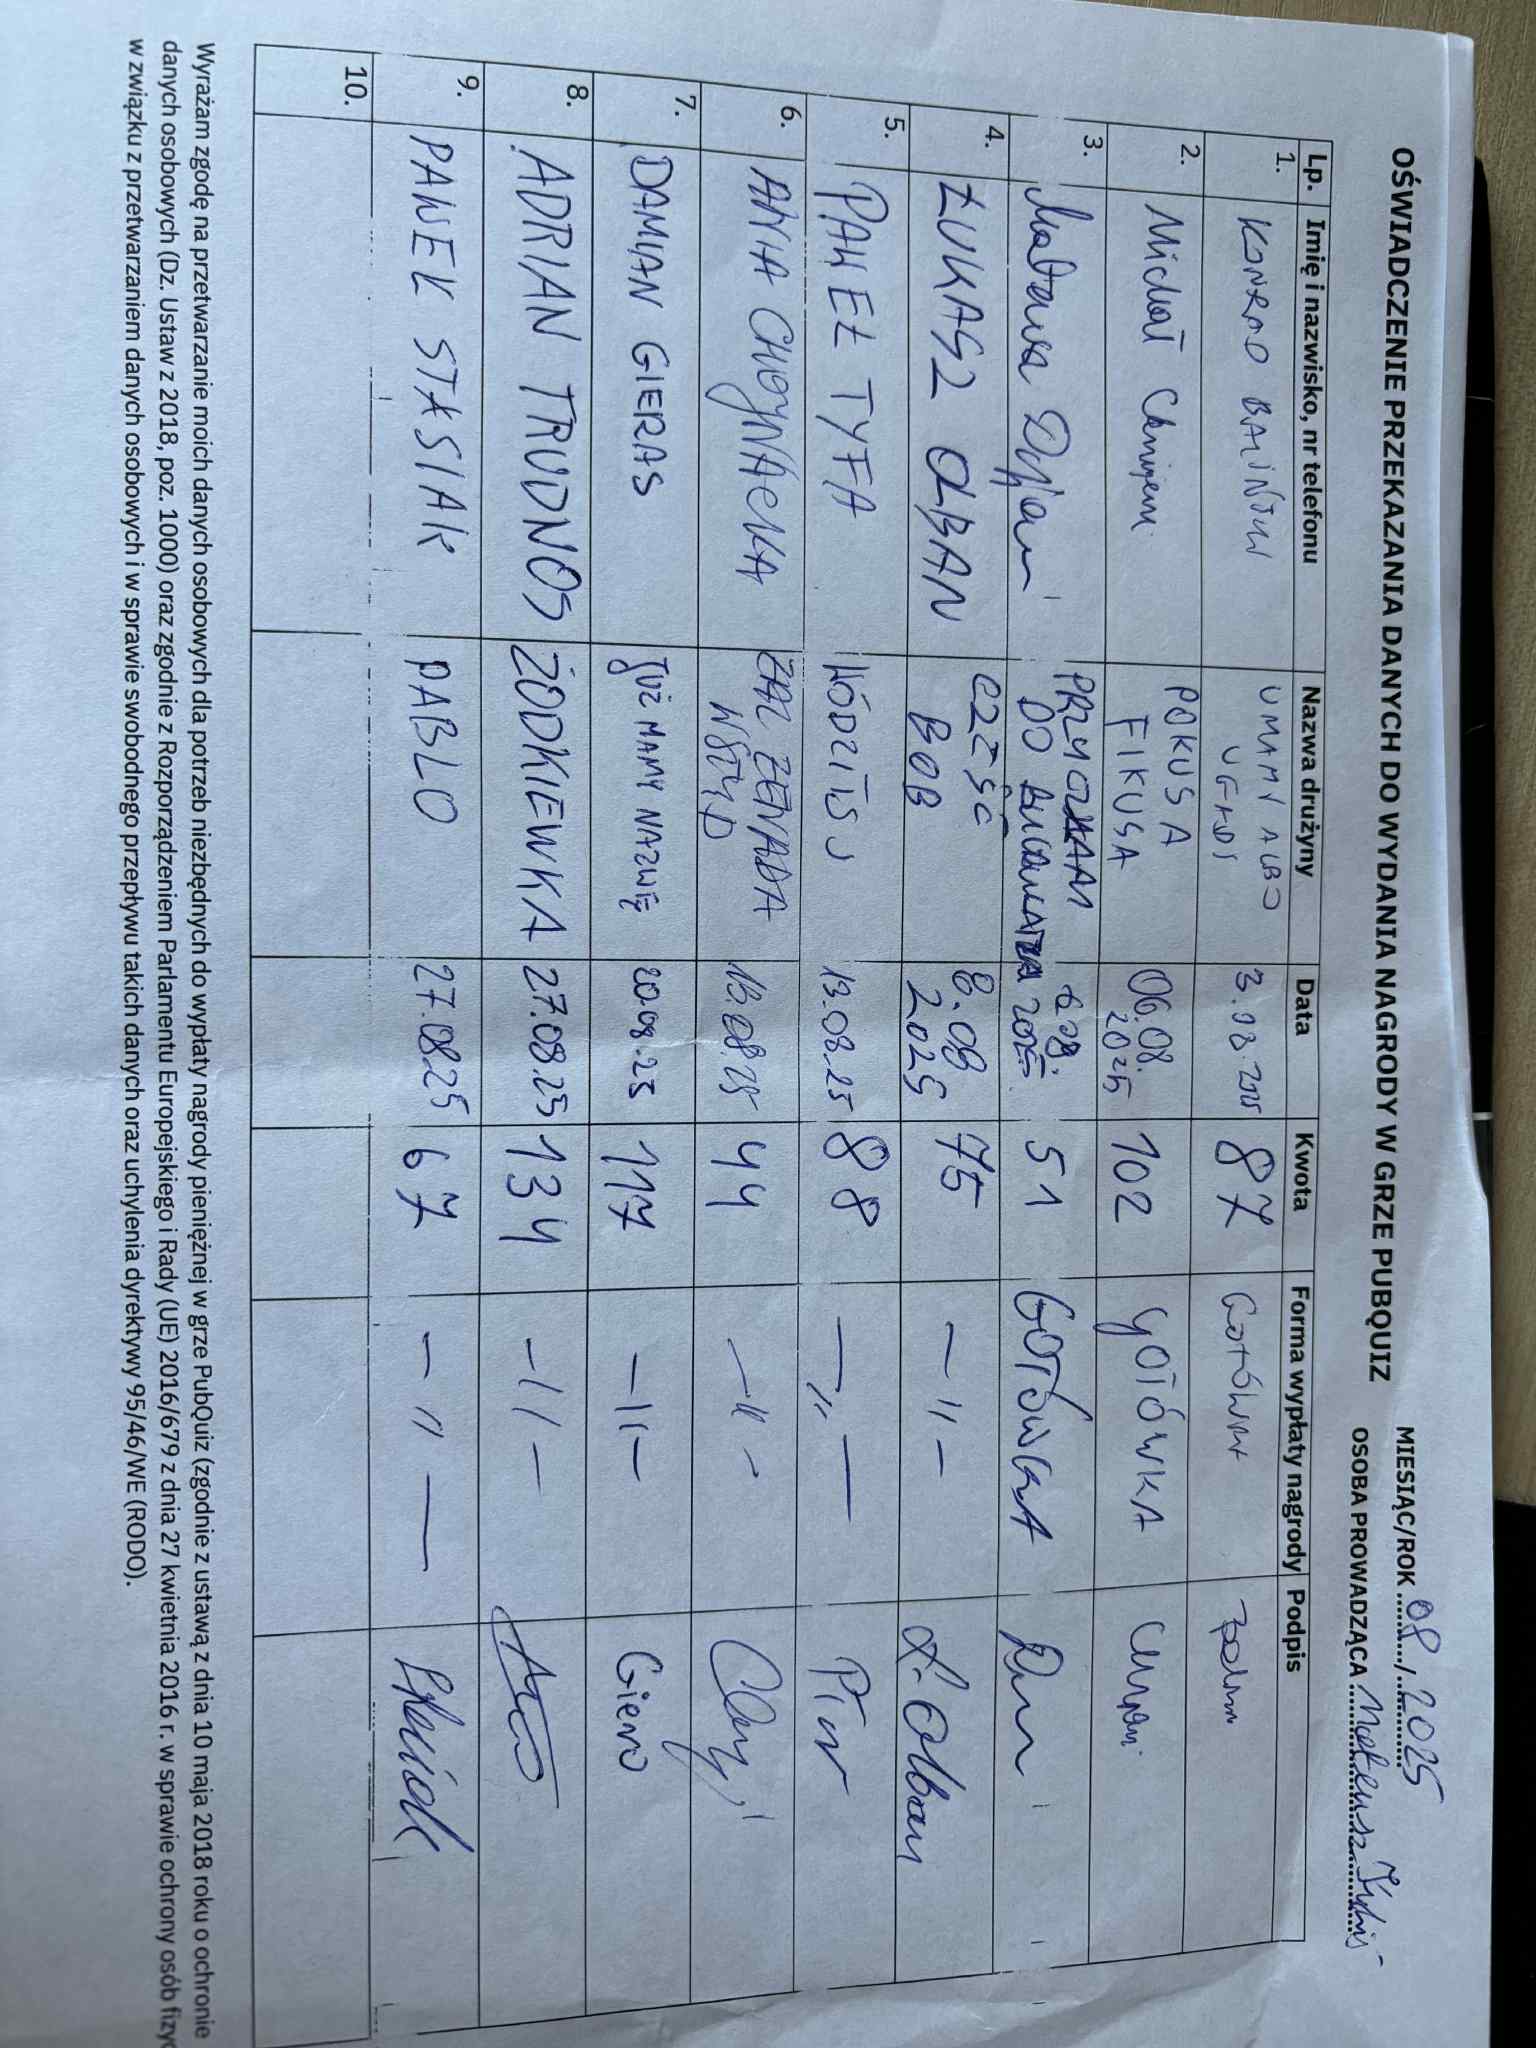 OŚWIADCZENIE PRZEKAZANIA DANYCH DO WYDANIA NAGRODY W GRZE PUBQUIZ
MIESIĄC/ROK 08/2025
OSOBA PROWADZĄCA Mateusz
Lp. Imię i nazwisko, nr telefonu Nazwa drużyny Data Kwota Forma wypłaty nagrody Podpis
1. KONRAD UMAMI ALBO 3.08.2025 87 GOTÓWKA
2. Michał POKUSA FIKUSA 06.08.2025 102 GOTÓWKA
3. DO 6.08.2025 51 GOTÓWKA
4. ŁUKASZ OLBAN CZEŚĆ BOB 8.08 2025 75 -//- Ł. Olban
5. PAWEŁ TYFA 13.08.25 88 -//-
6. ANIA CHOJNACKA ŻAL ŻENADA WSTYD 13.08.25 44 -//-
7. DAMIAN GIERAS JUŻ MAMY NAZWĘ 20.08.25 117 -//- Giera
8. ADRIAN TRUDNOS ŻODKIEWKA 27.08.25 134 -//-
9. PAWEŁ STASIAK PABLO 27.08.25 67 -//-
10.
Wyrażam zgodę na przetwarzanie moich danych osobowych dla potrzeb niezbędnych do wypłaty nagrody pieniężnej w grze PubQuiz (zgodnie z ustawą z dnia 10 maja 2018 roku o ochronie
danych osobowych (Dz. Ustaw z 2018, poz. 1000) oraz zgodnie z Rozporządzeniem Parlamentu Europejskiego i Rady (UE) 2016/679 z dnia 27 kwietnia 2016 r. w sprawie ochrony osób fizyc
w związku z przetwarzaniem danych osobowych i w sprawie swobodnego przepływu takich danych oraz uchylenia dyrektywy 95/46/WE (RODO).